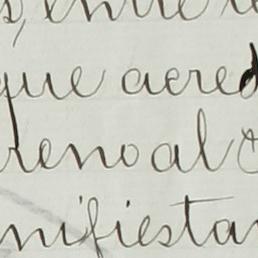 s, entre
que acred
reno al
nifiestan